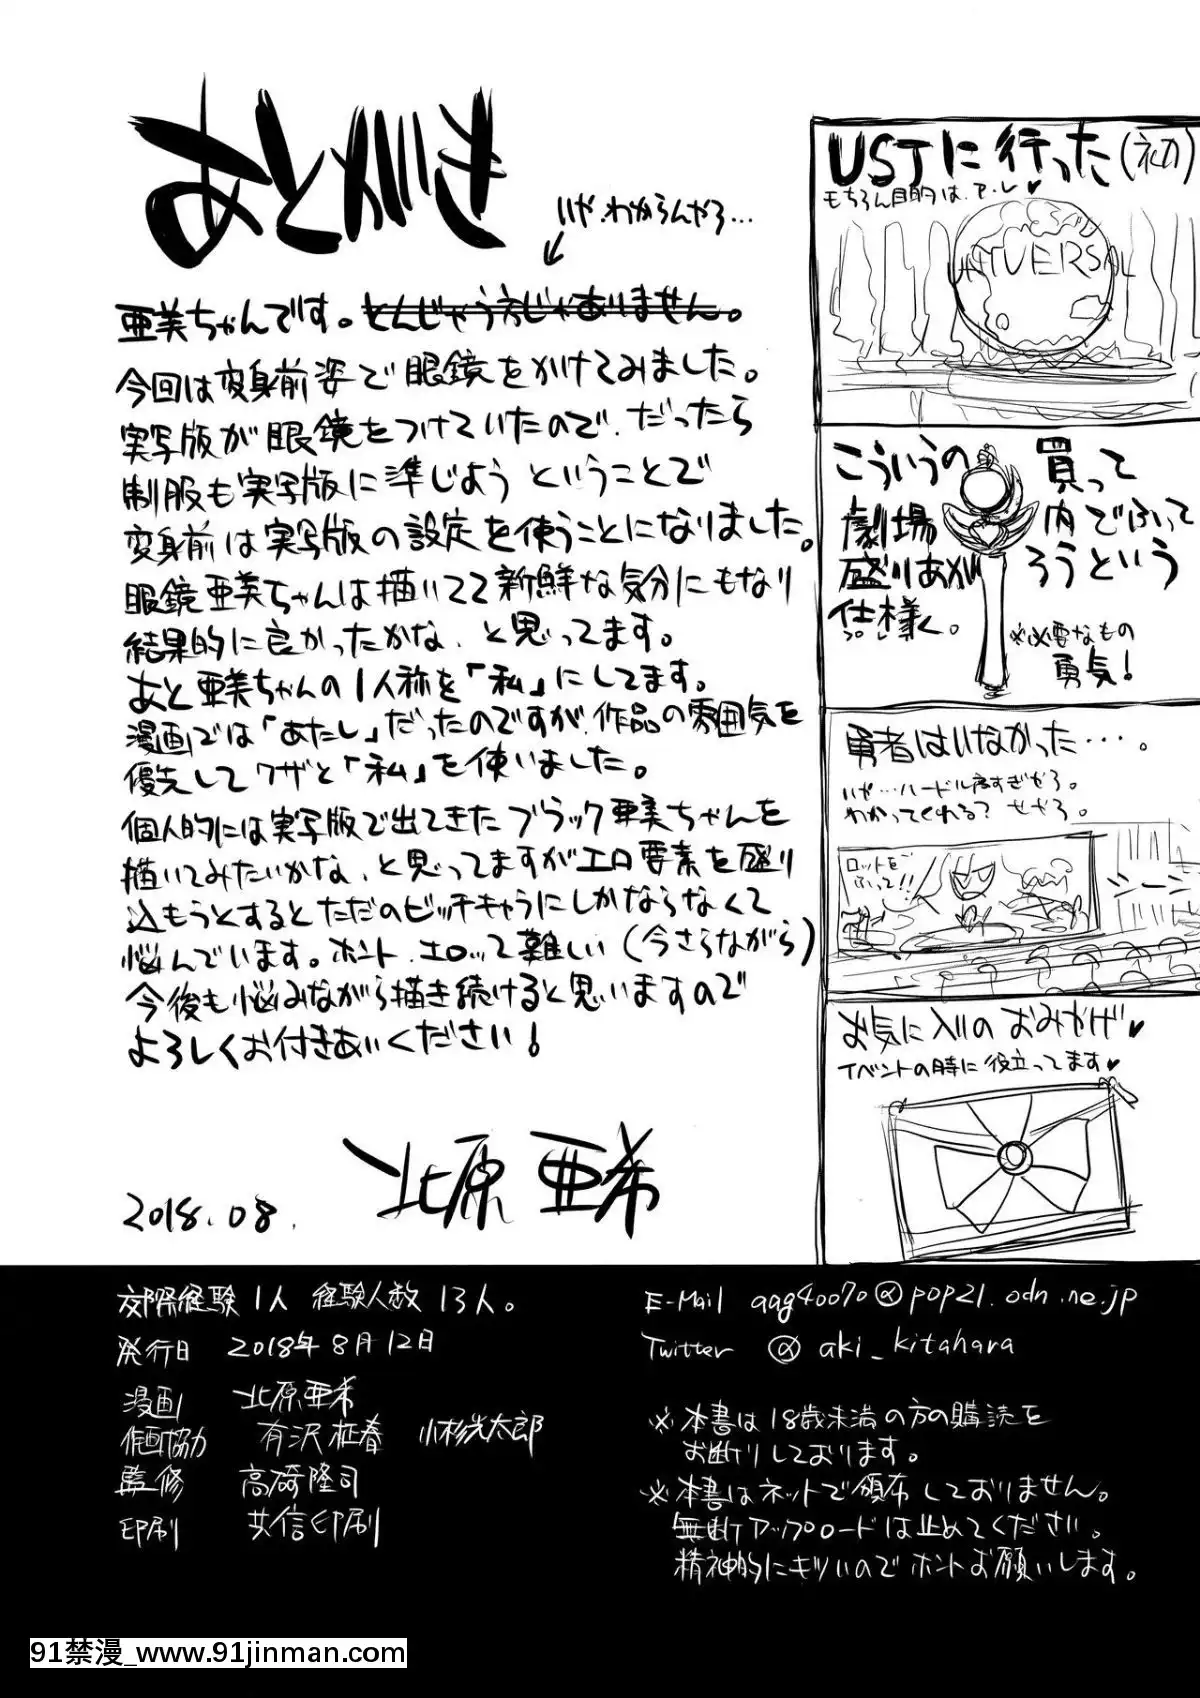 あとがき
いや、わからんやろ…
亜美ちゃんです。とんじゃう方じゃありません。
今回は変身前姿で眼鏡をかけてみました。
実写版が眼鏡をつけていたので、だったら
制服も実写版に準じようということで
変身前は実写版の設定を使うことになりました。
眼鏡亜美ちゃんは描いてて新鮮な気分にもなり
結果的に良かったかな、と思ってます。
あと亜美ちゃんの1人称を「私」にしてます。
漫画では「あたし」だったのですが、作品の雰囲気を
優先してワザと「私」を使いました。
個人的には実写版で出てきたブラック亜美ちゃんを
描いてみたいかな、と思ってますがエロ要素を盛り
込もうとするとただのビッチキャラにしかならなくて
悩んでいます。ホント、エロって難しい(今さらながら)
今後も悩みながら描き続けると思いますので
よろしくお付きあいください!
2018.08.
北原亜希
USJに行った(初)
もちろん目的はア・レ♥
UNIVERSAL
こういうの買って
劇場内でふって
盛りあがろうという
仕様。
※必要なもの
勇気!
勇者はいなかった…。
いや…ハードル高すぎやろ。
わかってくれる?せやろ。
ロッドを
ふって!!
シーン
お気に入りのおみやげ♥
イベントの時に役立ってます♥
交際経験1人 経験人数13人。
発行日 2018年8月12日
漫画 北原亜希
作画協力 有沢柾春 小杉光太郎
監修 高崎隆司
印刷 共信印刷
E-Mail aag40070@pop21.odn.ne.jp
Twitter @aki_kitahara
※本書は18歳未満の方の購読を
お断りしております。
※本書はネットで頒布しておりません。
無断アップロードは止めてください。
精神的にキツいのでホントお願いします。
91禁漫_www.91jinman.com